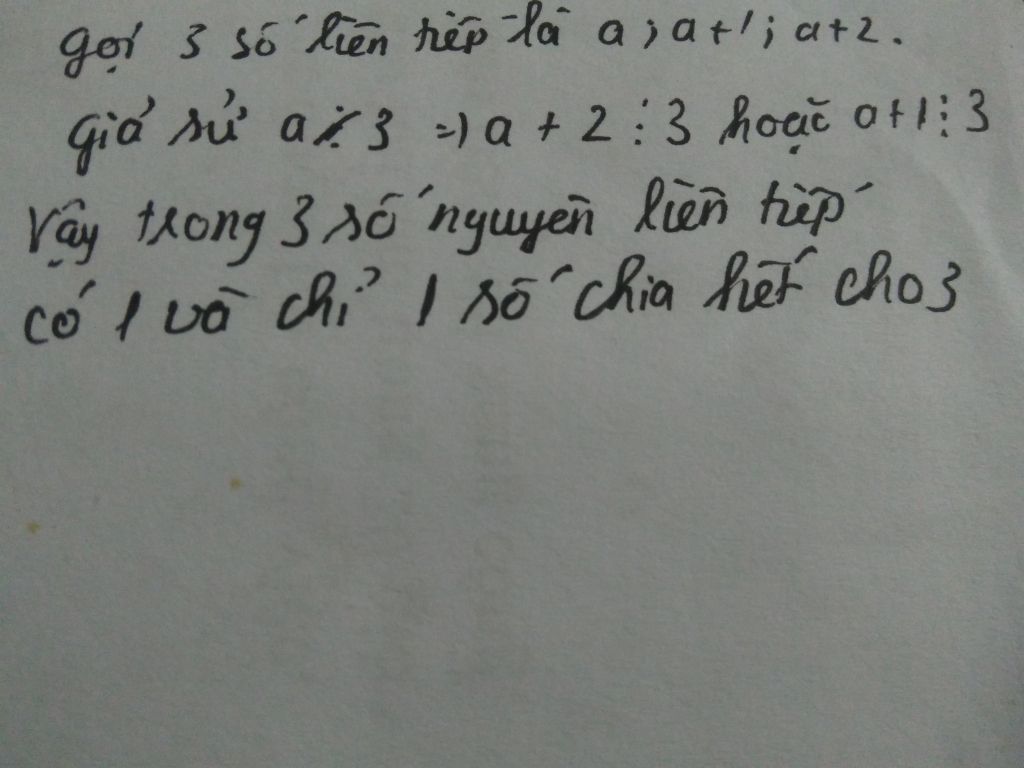 gọi 3 số liên tiếp là a; a+1; a+2.
giả sử a⋮̸3 => a + 2 ⋮ 3 hoặc a+1⋮3
Vậy trong 3 số nguyên liên tiếp
có 1 và chỉ 1 số chia hết cho 3